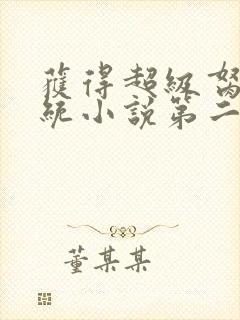 獲得超級
統小說第二
董某某